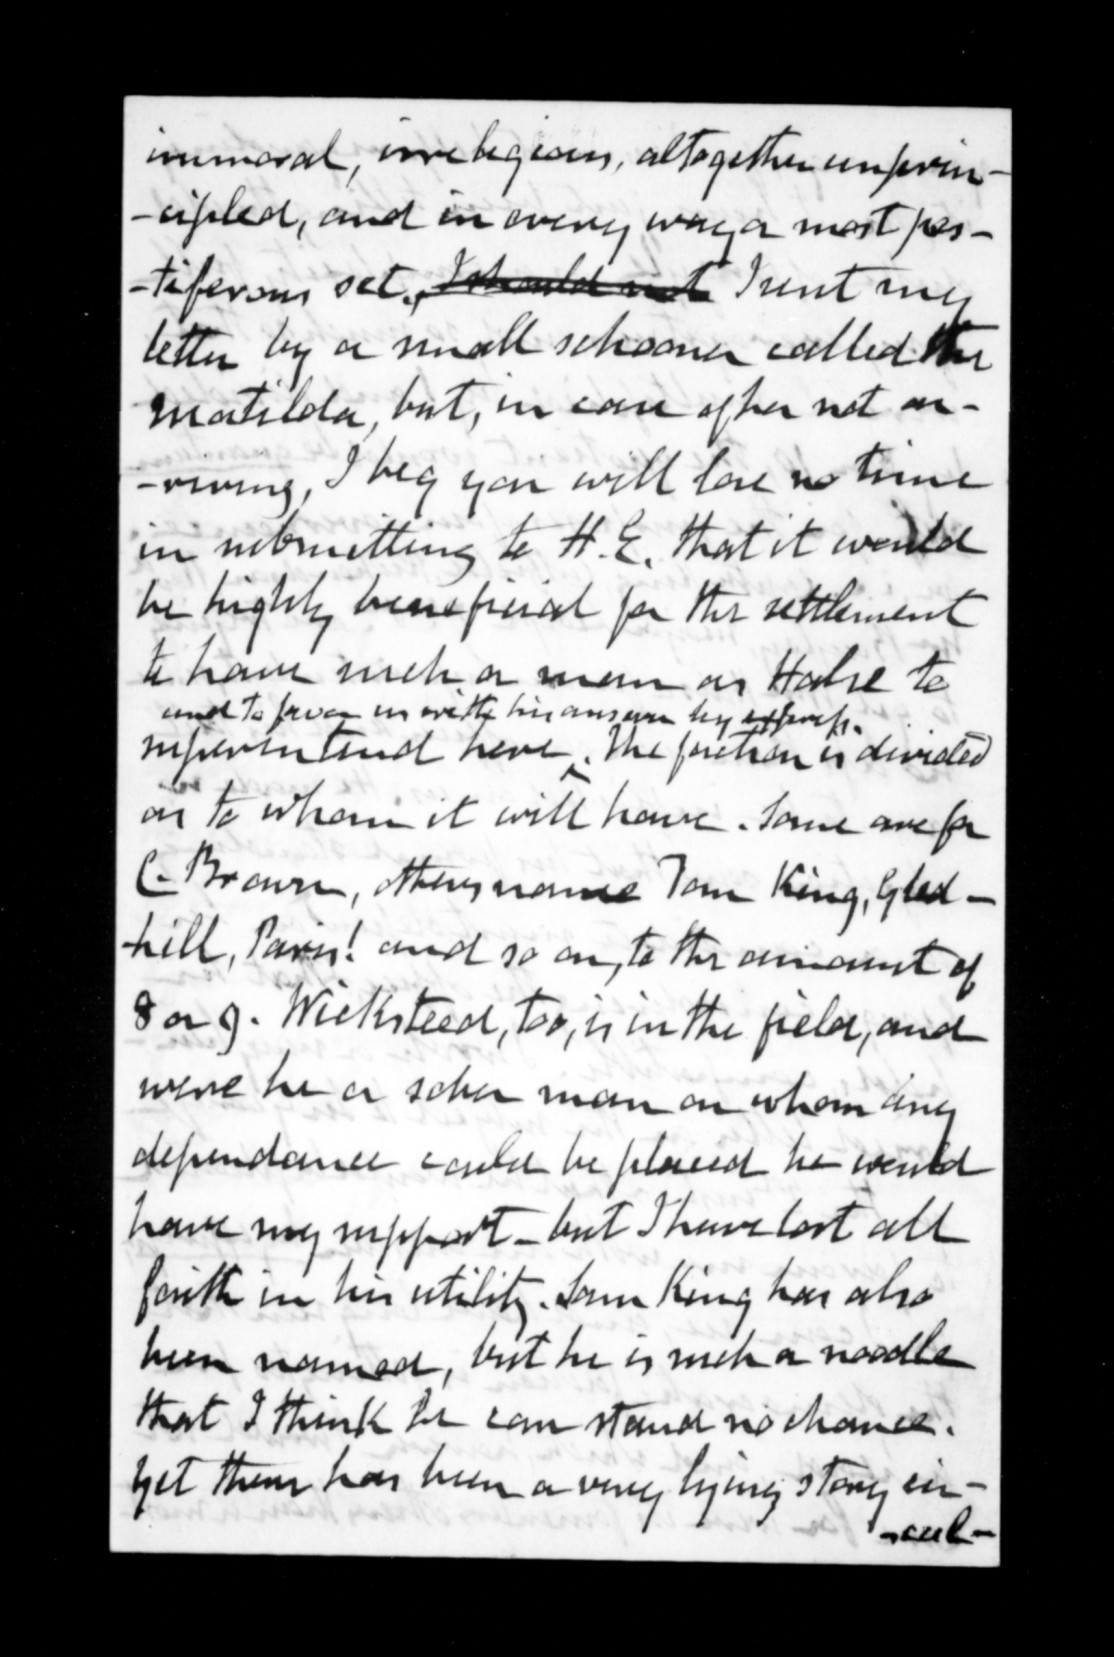 immoral, irreligious, altogether unprin-
-cipled, and in every way a most pes-
-tiferous set. I should not I sent my
letter by a small schooner called the
Matilda, but, in case of her not ar-
-riving, I beg you will lose no time
in submitting to H.E. that it would
be highly beneficial for the settlement
to have such a man as Halse to
and to favor us with his answer by express.
superintend here. The faction is divided
as to whom it will have. Some are for
C. Brown, others name Tom King, Gled-
-hill, Paris! and so on, to the amount of
8 or 9. Wicksteed, too, is in the field, and
were he a sober man on whom any
dependance could be placed he would
have my support - but I have lost all
faith in his utility. Sam King has also
been named, but he is such a noodle
that I think he can stand no chance.
Yet there has been a very lying story in-
-cul-